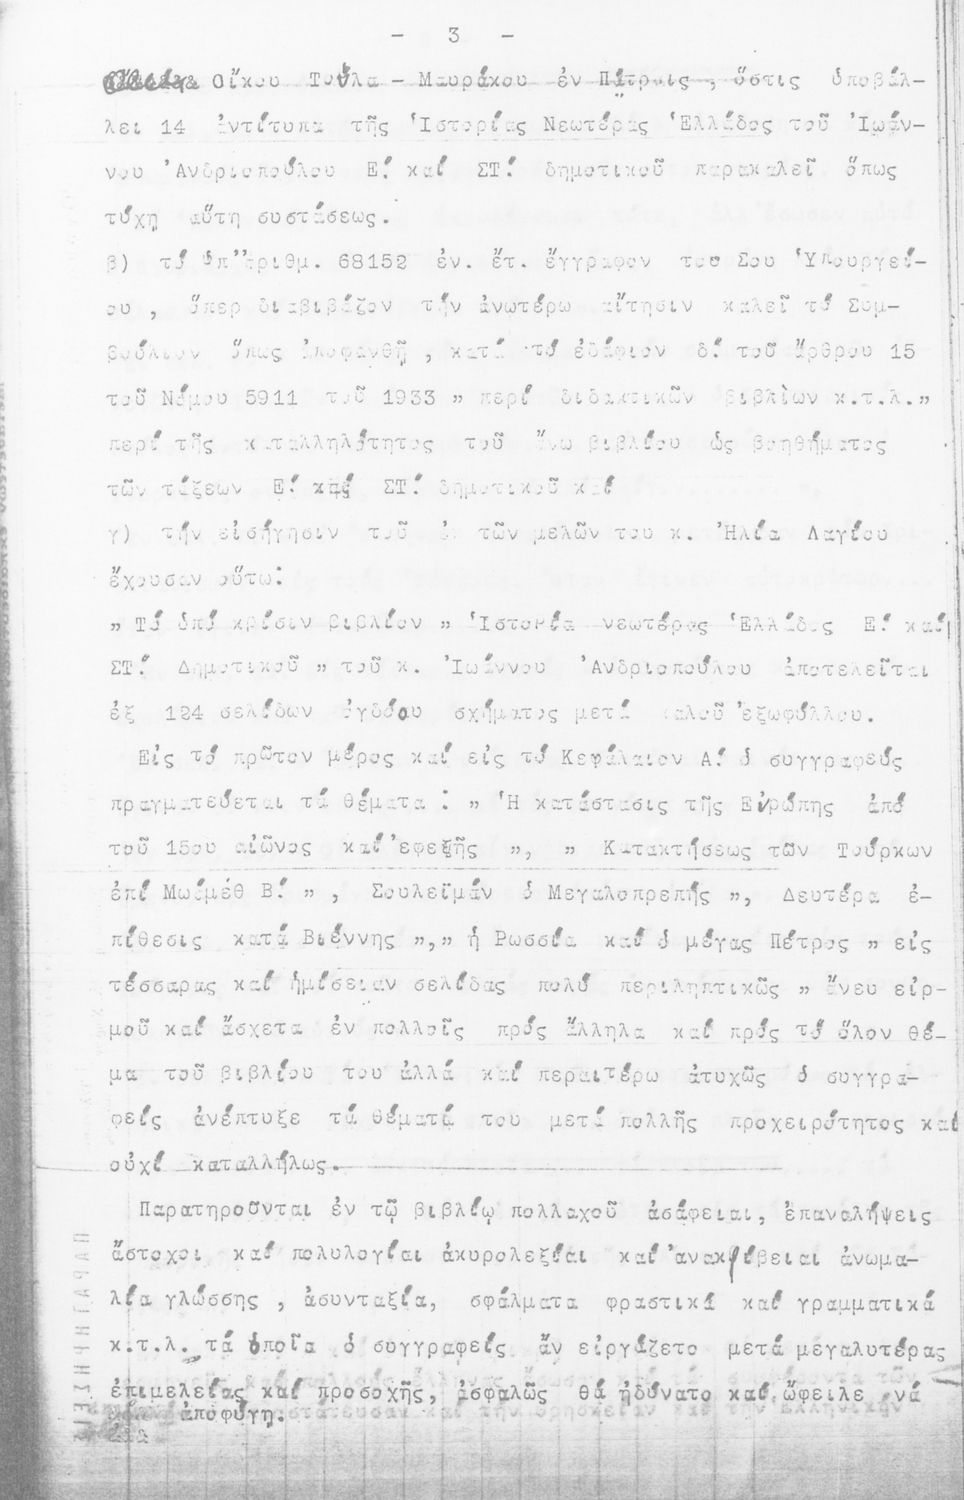 - 3 -
Οἴκου Τούλα - Μαυράκου ἐν Πάτραις, ὅστις ὑποβάλ-
λει 14 ἀντίτυπα τῆς Ἱστορίας Νεωτέρας Ἑλλάδος τοῦ Ἰωάν-
νου Ἀνδριοπούλου Ε! καί ΣΤ! δημοτικοῦ παρακαλεῖ ὅπως
τύχῃ αὕτη συστάσεως.
β) τό ὑπ' ἀριθμ. 68152 ἐν. ἔτ. ἔγγραφον του Σου Ὑπουργεί-
ου , ὅπερ διαβιβάζον τήν ἀνωτέρω αἴτησιν καλεῖ τό Συμ-
βούλιον ὅπως ἀποφανθῇ , κατά τό ἐδάφιον δ! τοῦ ἄρθρου 15
τοῦ Νόμου 5911 τοῦ 1933 " περί διδακτικῶν βιβλίων κ.τ.λ."
περί τῆς καταλληλότητος τοῦ ἄνω βιβλίου ὡς βοηθήματος
τῶν τάξεων Ε! καί ΣΤ! δημοτικοῦ καί
γ) τήν εἰσήγησιν τοῦ ἐκ τῶν μελῶν του κ. Ἠλία Λαγίου
ἔχουσαν οὕτω:
" Τό ὑπό κρίσιν βιβλίον " Ἱστορία νεωτέρας Ἑλλάδος Ε! καί
ΣΤ! Δημοτικοῦ " τοῦ κ. Ἰωάννου Ἀνδριοπούλου ἀποτελεῖται
ἐξ 124 σελίδων ὀγδόου σχήματος μετά καλοῦ ἐξωφύλλου.
Εἰς τό πρῶτον μέρος καί εἰς τό Κεφάλαιον Α! ὁ συγγραφεύς
πραγματεύεται τά θέματα : " Ἡ κατάστασις τῆς Εὐρώπης ἀπό
τοῦ 15ου αἰῶνος καί ἐφεξῆς ", " Κατακτήσεως τῶν Τούρκων
ἐπί Μωάμέθ Β! " , Σουλεϊμάν ὁ Μεγαλοπρεπής ", Δευτέρα ἐ-
πίθεσις κατά Βιέννης "," ἡ Ρωσσία καί ὁ μέγας Πέτρος " εἰς
τέσσαρας καί ἡμίσειαν σελίδας πολύ περιληπτικῶς " ἄνευ εἱρ-
μοῦ καί ἄσχετα ἐν πολλοῖς πρός ἄλληλα καί πρός τό ὅλον θέ-
μα τοῦ βιβλίου του ἀλλά καί περαιτέρω ἀτυχῶς ὁ συγγρα-
φεύς ἀνέπτυξε τά θέματά του μετά πολλῆς προχειρότητος καί
οὐχί καταλλήλως.
Παρατηροῦνται ἐν τῷ βιβλίῳ πολλαχοῦ ἀσάφειαι, ἐπαναλήψεις
ἄστοχοι καί πολυλογίαι ἀκυρολεξίαι καί ἀνακρίβειαι ἀνωμα-
λία γλώσσης , ἀσυνταξία, σφάλματα φραστικά καί γραμματικά
κ.τ.λ. τά ὁποῖα ὁ συγγραφεύς ἄν εἰργάζετο μετά μεγαλυτέρας
ἐπιμελείας καί προσοχῆς, ἀσφαλῶς θά ἠδύνατο καί ὤφειλε νά
ἀποφύγῃ.